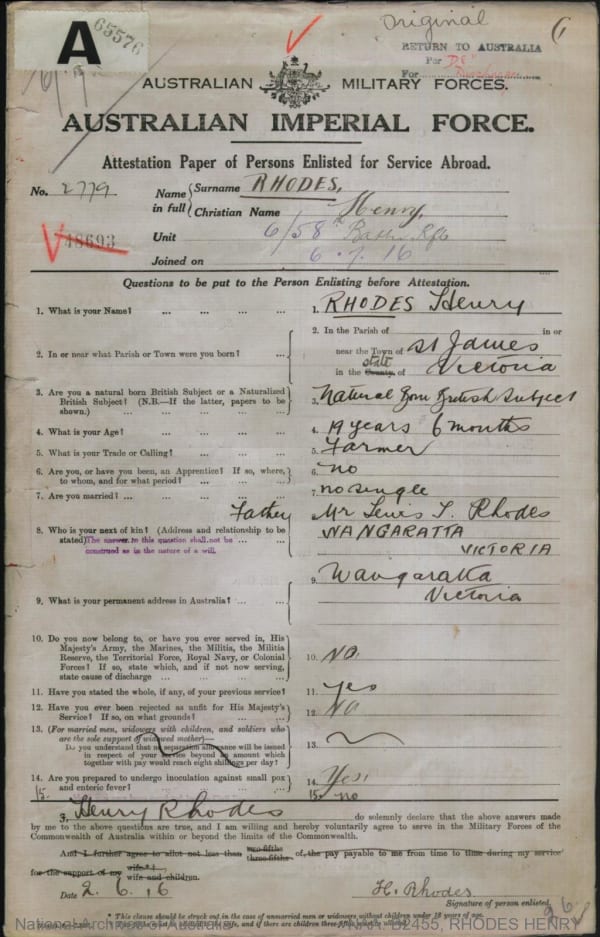 A
65576
Original
RETURN TO AUSTRALIA
For
For
AUSTRALIAN MILITARY FORCES.
AUSTRALIAN IMPERIAL FORCE.
Attestation Paper of Persons Enlisted for Service Abroad.
No. 2779
Name in full { Surname RHODES,
Christian Name Henry,
48693
Unit 6/58th Battn Rfts
Joined on 6.7.16
Questions to be put to the Person Enlisting before Attestation.
1. What is your Name? ... ... ... ... 1. RHODES Henry
2. In or near what Parish or Town were you born? ... 2. In the Parish of in or
near the Town of St James
in the County State of Victoria
3. Are you a natural born British Subject or a Naturalized
British Subject? (N.B.—If the latter, papers to be
shown.) ... ... ... ... 3. Natural Born British Subject
4. What is your Age? ... ... ... ... 4. 19 years 6 months
5. What is your Trade or Calling? ... ... ... 5. Farmer
6. Are you, or have you been, an Apprentice? If so, where,
to whom, and for what period? ... ... ... 6. no
7. Are you married? ... ... ... ... 7. no single
8. Who is your next of kin? (Address and relationship to be
stated) The answer to this question shall not be
construed as in the nature of a will.
Father Mr Lewis T. Rhodes
WANGARATTA
VICTORIA
9. What is your permanent address in Australia? ... ... 9. Wangaratta
Victoria
10. Do you now belong to, or have you ever served in, His
Majesty's Army, the Marines, the Militia, the Militia
Reserve, the Territorial Force, Royal Navy, or Colonial
Forces? If so, state which, and if not now serving,
state cause of discharge ... ... ... ... 10. No.
11. Have you stated the whole, if any, of your previous service? 11. Yes
12. Have you ever been rejected as unfit for His Majesty's
Service? If so, on what grounds? ... ... 12. No
13. (For married men, widowers with children, and soldiers who
are the sole support of widowed mother)—
Do you understand that no separation allowance will be issued
in respect of your service beyond an amount which
together with pay would reach eight shillings per day? 13.
14. Are you prepared to undergo inoculation against small pox
and enteric fever? ... ... ... ... 14. Yes.
15. 15. no
I, Henry Rhodes do solemnly declare that the above answers made
by me to the above questions are true, and I am willing and hereby voluntarily agree to serve in the Military Forces of the
Commonwealth of Australia within or beyond the limits of the Commonwealth.
And I further agree to allot not less than two-fifths three-fifths of the pay payable to me from time to time during my service
for the support of my wife* wife and children.
Date 2.6.16 H. Rhodes
Signature of person enlisted.
* This clause should be struck out in the case of unmarried men or widowers without children under 18 years of age.
National Archives of Australia NAA: B2455, RHODES HENRY